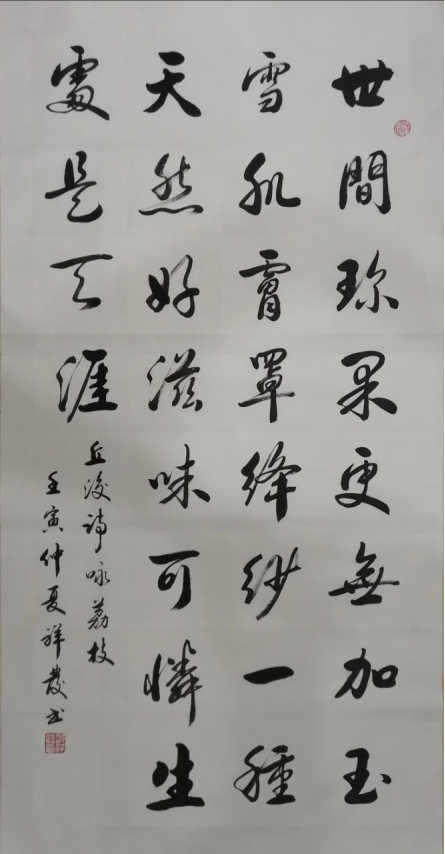 世間珎果更無加玉
雪肌膚罩绛纱一種
天然好滋味可憐生
處是天涯
丘浚詩咏荔枝
壬寅仲夏祥发书